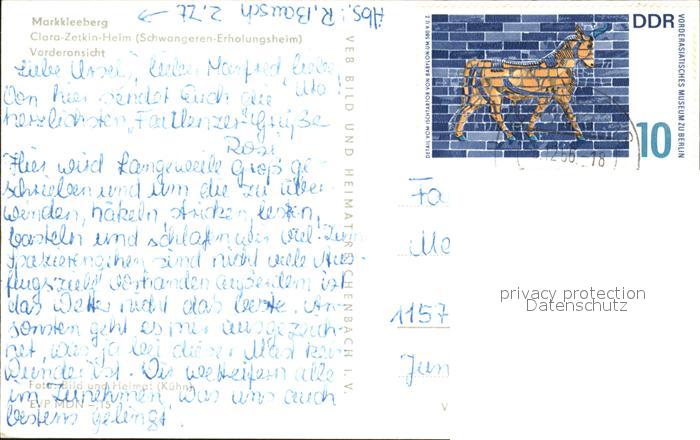 Abs.: R. Bausch z. Zt →
Markkleeberg
Clara-Zetkin-Heim (Schwangeren-Erholungsheim)
Vorderansicht
Liebe Ursel, lieber Manfred, liebe Uta
Von hier sendet Euch die
herzlichsten „Faulenzer“grüße
Rosi
Hier wird Langeweile groß ge-
schrieben und um die zu über-
winden, häkeln, stricken, lesen,
basteln und schlafen wir viel. Zum
Spazierengehen sind nicht viele Au-
flugsziele vorhanden außerdem ist
das Wetter nicht das beste. An-
sonsten geht es mir ausgezeich-
net, was ja bei dieser Mast kein
Wunder ist. Wir wetteifern alle
im Zunehmen, was uns auch
bestens gelingt.
Foto: Bild und Heimat (Kühn)
EVP MDN -,15
VEB BILD UND HEIMAT REICHENBACH I. V.
DDR
10
VORDERASIATISCHES MUSEUM ZU BERLIN
DETAIL VOM ISCHTARTOR VON BABYLON UM 580 V. U. Z.
-18
Fa
1157
Jun
V
privacy protection
Datenschutz